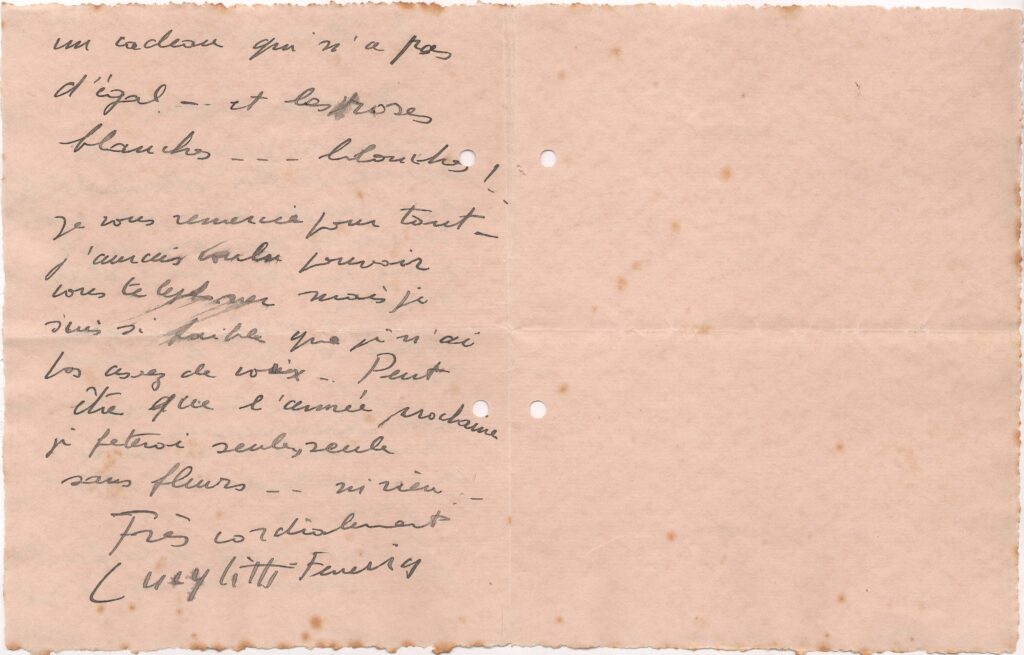 un cadeau qui n'a pas
d'égal _ . et les roses
blanches _ _ _ blanches !
je vous remercie pour tout _
j'aurais voulu pouvoir
vous telephoner mais je
suis si faible que je n'ai
pas assez de voix _ Peut
être que l'année prochaine
je feterai seule, seule
sans fleurs _ _ ni rien _
Très cordialement